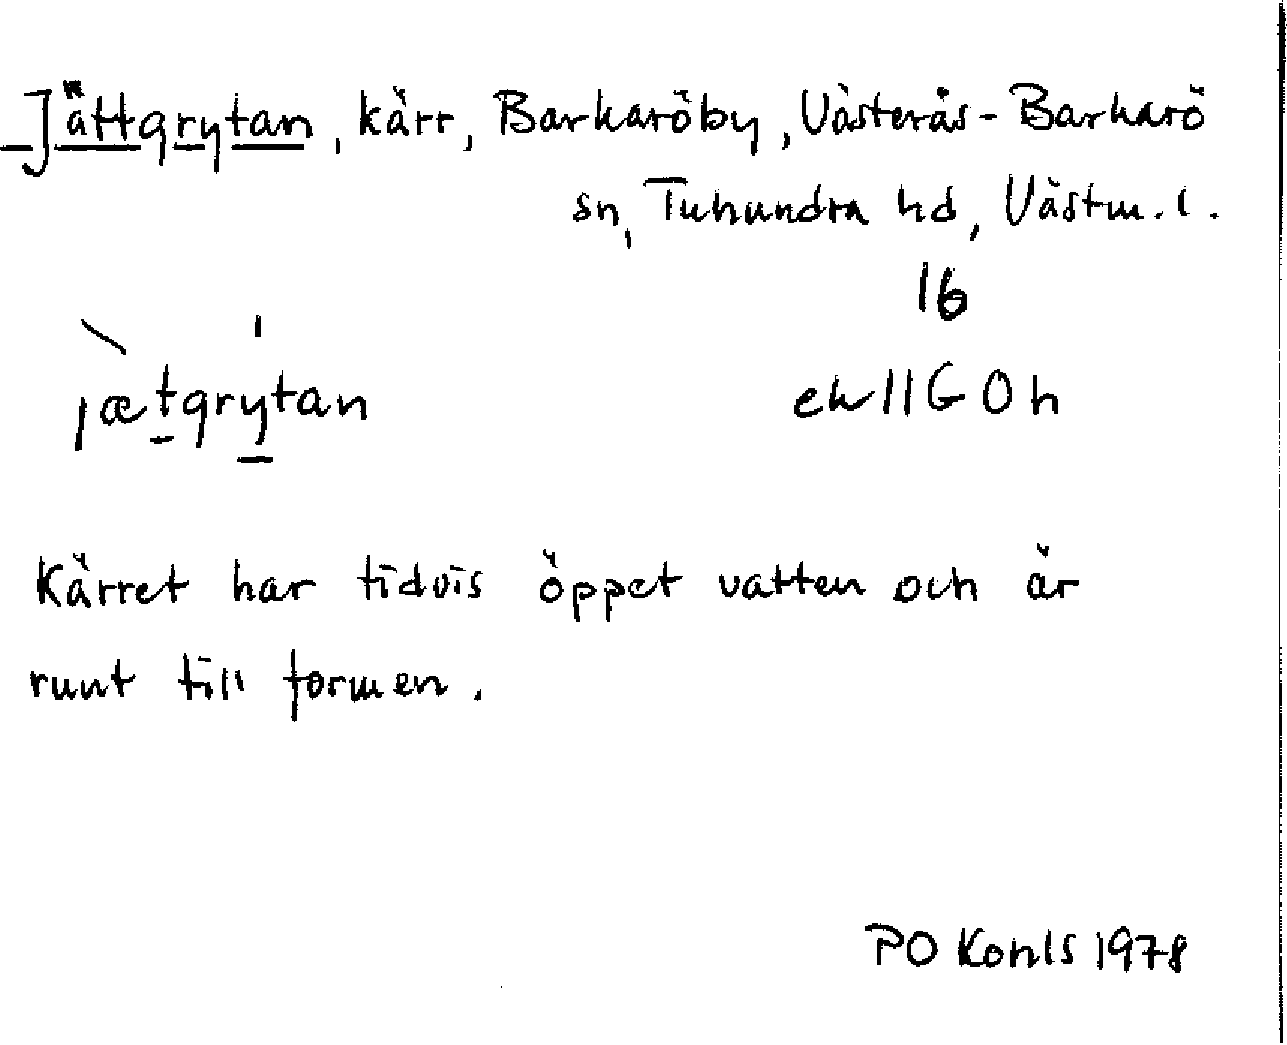 Jättgrytan, kärr, Barkaröby, Västerås-Barkarö
sn, Tuhundra hd, Västm. l.
16
jætgrytan ek 11G 0h
Kärret har tidvis öppet vatten och är
runt till formen.
PO Kohls 1978